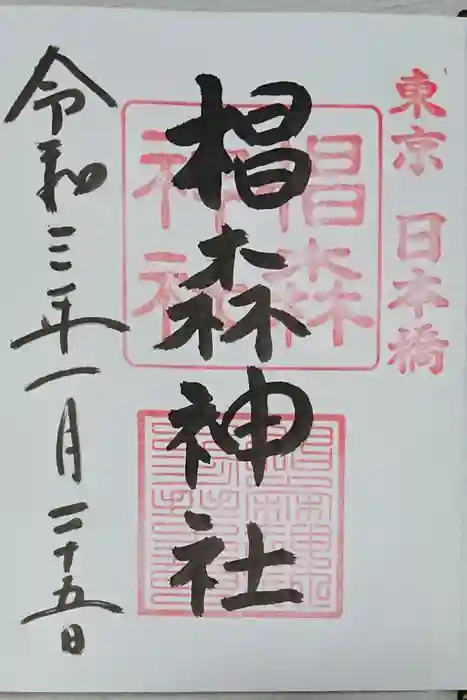 東京 日本橋
椙森神社
椙森
神社
令和三年一月二十五日